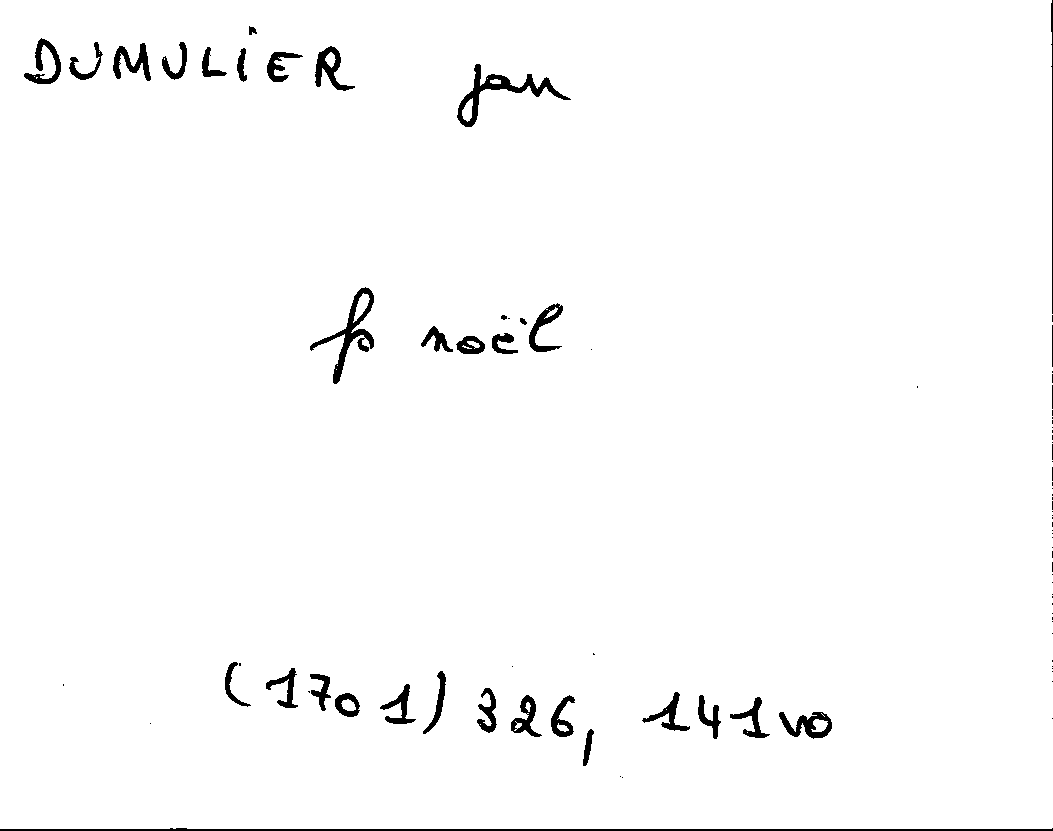 DUMULiER jan
fs noël
(1701) 326, 141vo